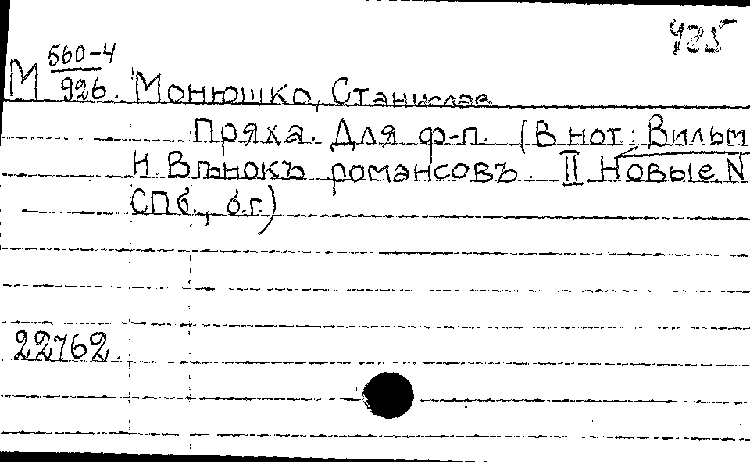 425
М 560-4/926. Монюшко, Станислав
Пряха. Для ф-п. (В нот.: Вильм
Н. Вѣнокъ романсовъ. II Новые N
СПб., б.г.)
22762.